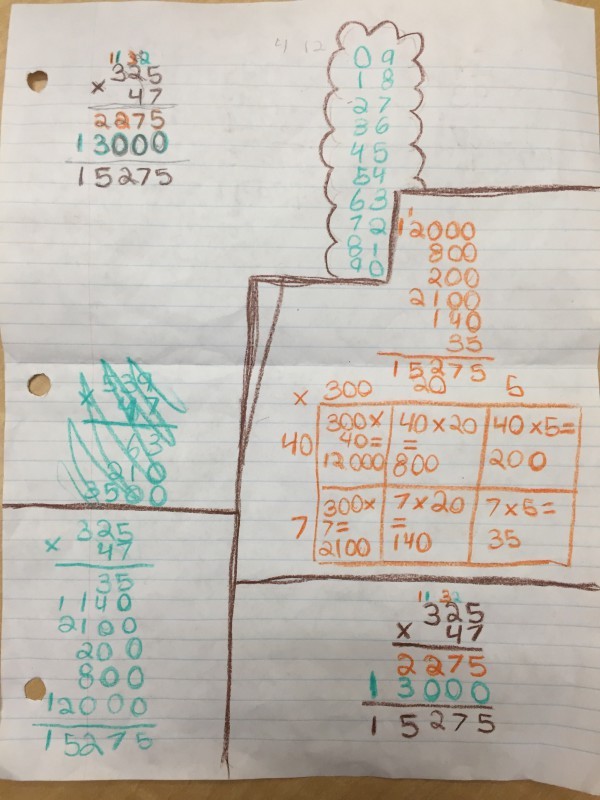 11 32
325
× 47
2275
13000
15275
4 12
09
18
27
36
45
54
63
72
81
90
1
12000
800
200
2100
140
35
15275
× 300 20 5
40 300× 40= 12000 40×20 = 800 40×5= 200
7 300× 7= 2100 7×20 = 140 7×5= 35
539
× 47
63
210
3500
325
× 47
35
1140
2100
200
800
12000
15275
11 32
325
× 47
2275
13000
15275